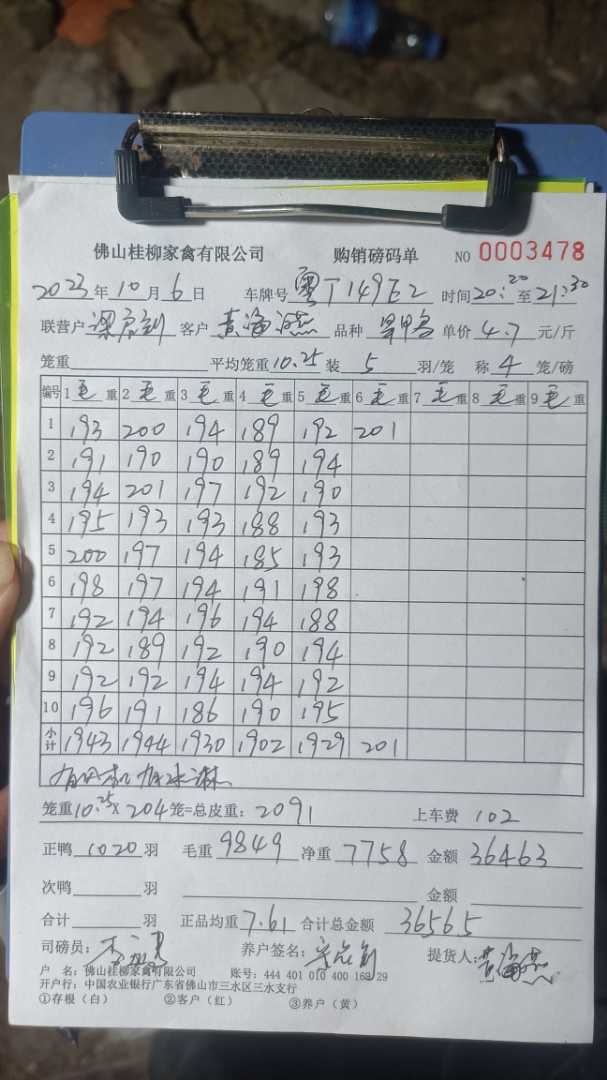 佛山桂柳家禽有限公司 购销磅码单 NO 0003478
2023年10月6日 车牌号 粤J149E2 时间20:20至21:30
联营户 客户 黄海燕 品种 单价 4.7 元/斤
笼重 平均笼重10.25 装 5 羽/笼 称 4 笼/磅
编号 1毛重 2毛重 3毛重 4毛重 5毛重 6毛重 7毛重 8毛重 9毛重
1 193 200 194 189 192 201
2 191 190 190 189 194
3 194 201 197 192 190
4 195 193 193 188 193
5 200 197 194 185 193
6 198 197 194 191 198
7 192 194 196 194 188
8 192 189 192 190 194
9 192 192 194 194 192
10 196 191 186 190 195
小计 1943 1944 1930 1902 1929 201
笼重10.25×204笼=总皮重:2091 上车费 102
正鸭 1020 羽 毛重 9849 净重 7758 金额 36463
次鸭 羽 金额
合计 羽 正品均重 7.61 合计总金额 36565
司磅员: 养户签名: 提货人:黄海燕
户 名:佛山桂柳家禽有限公司 账号:444 401 010 400 168 29
开户行:中国农业银行广东省佛山市三水区三水支行
①存根(白) ②客户(红) ③养户(黄)